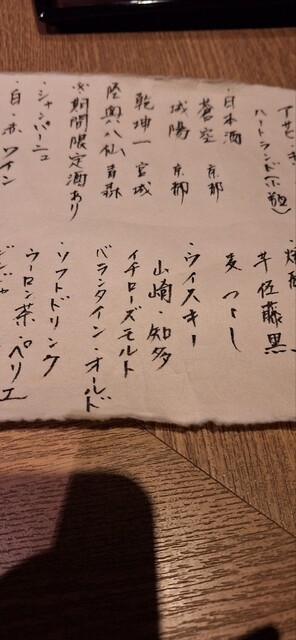 ハートランド(小瓶)
・日本酒
蒼空 京都
城陽 京都
乾坤一 宮城
陸奥八仙 青森
※期間限定酒あり
・シャンパーニュ
・白・赤ワイン
焼酎
芋 佐藤黒
麦 つくし
・ウイスキー
山崎・知多
イチローズモルト
バランタイン・オールド
・ソフトドリンク
ウーロン茶・ペリエ
ジンジャ